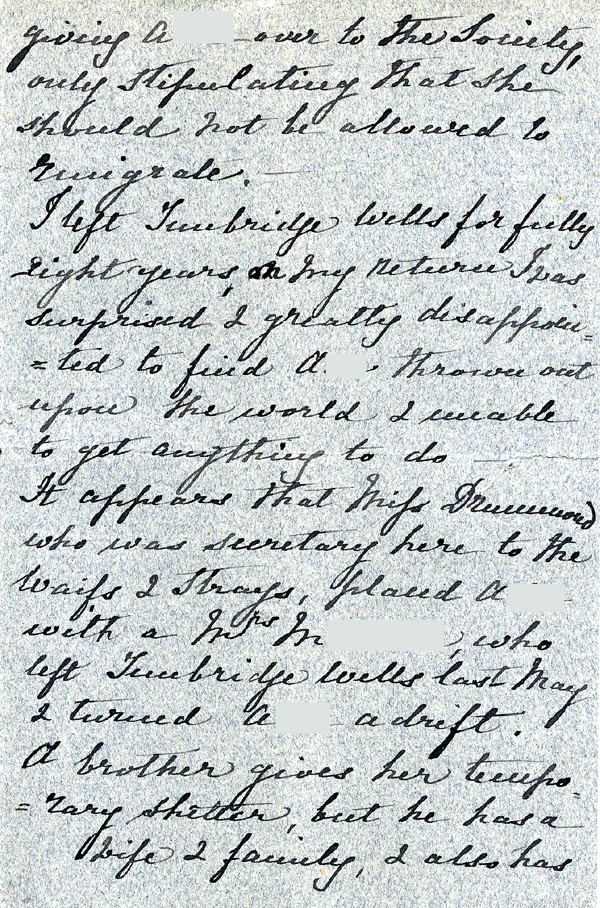 giving A over to the Society,
only stipulating that she
should not be allowed to
emigrate. —
I left Tunbridge Wells for fully
eight years, on my return I was
surprised & greatly disappoin=
=ted to find A. thrown out
upon the world & unable
to get anything to do —
It appears that Miss Drummond
who was secretary here to the
Waifs & Strays, placed A
with a Mrs M , who
left Tunbridge Wells last May
& turned A adrift.
A brother gives her tempo=
=rary shelter, but he has a
wife & family, & also has